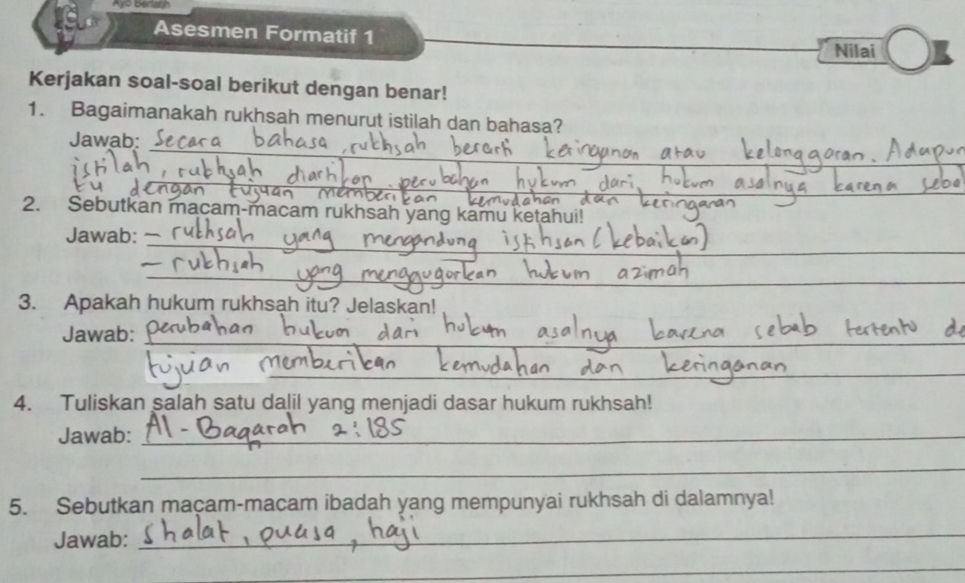 Ayo Berlatih
Asesmen Formatif 1
Nilai
Kerjakan soal-soal berikut dengan benar!
1. Bagaimanakah rukhsah menurut istilah dan bahasa?
Jawab: Secara bahasa, rukhsah berarti keringanan atau kelonggaran. Adapun
istilah, rukhsah diartikan perubahan hukum dari hukum asalnya karena seba
tu dengan tujuan memberikan kemudahan dan keringanan
2. Sebutkan macam-macam rukhsah yang kamu ketahui!
Jawab: - rukhsah yang mengandung istihsan (kebaikan)
- rukhsah yang menggugurkan hukum azimah
3. Apakah hukum rukhsah itu? Jelaskan!
Jawab: perubahan hukum dari hukum asalnya karena sebab tertentu de
tujuan memberikan kemudahan dan keringanan
4. Tuliskan salah satu dalil yang menjadi dasar hukum rukhsah!
Jawab: Al-Baqarah 2:185
5. Sebutkan macam-macam ibadah yang mempunyai rukhsah di dalamnya!
Jawab: Shalat, puasa, haji